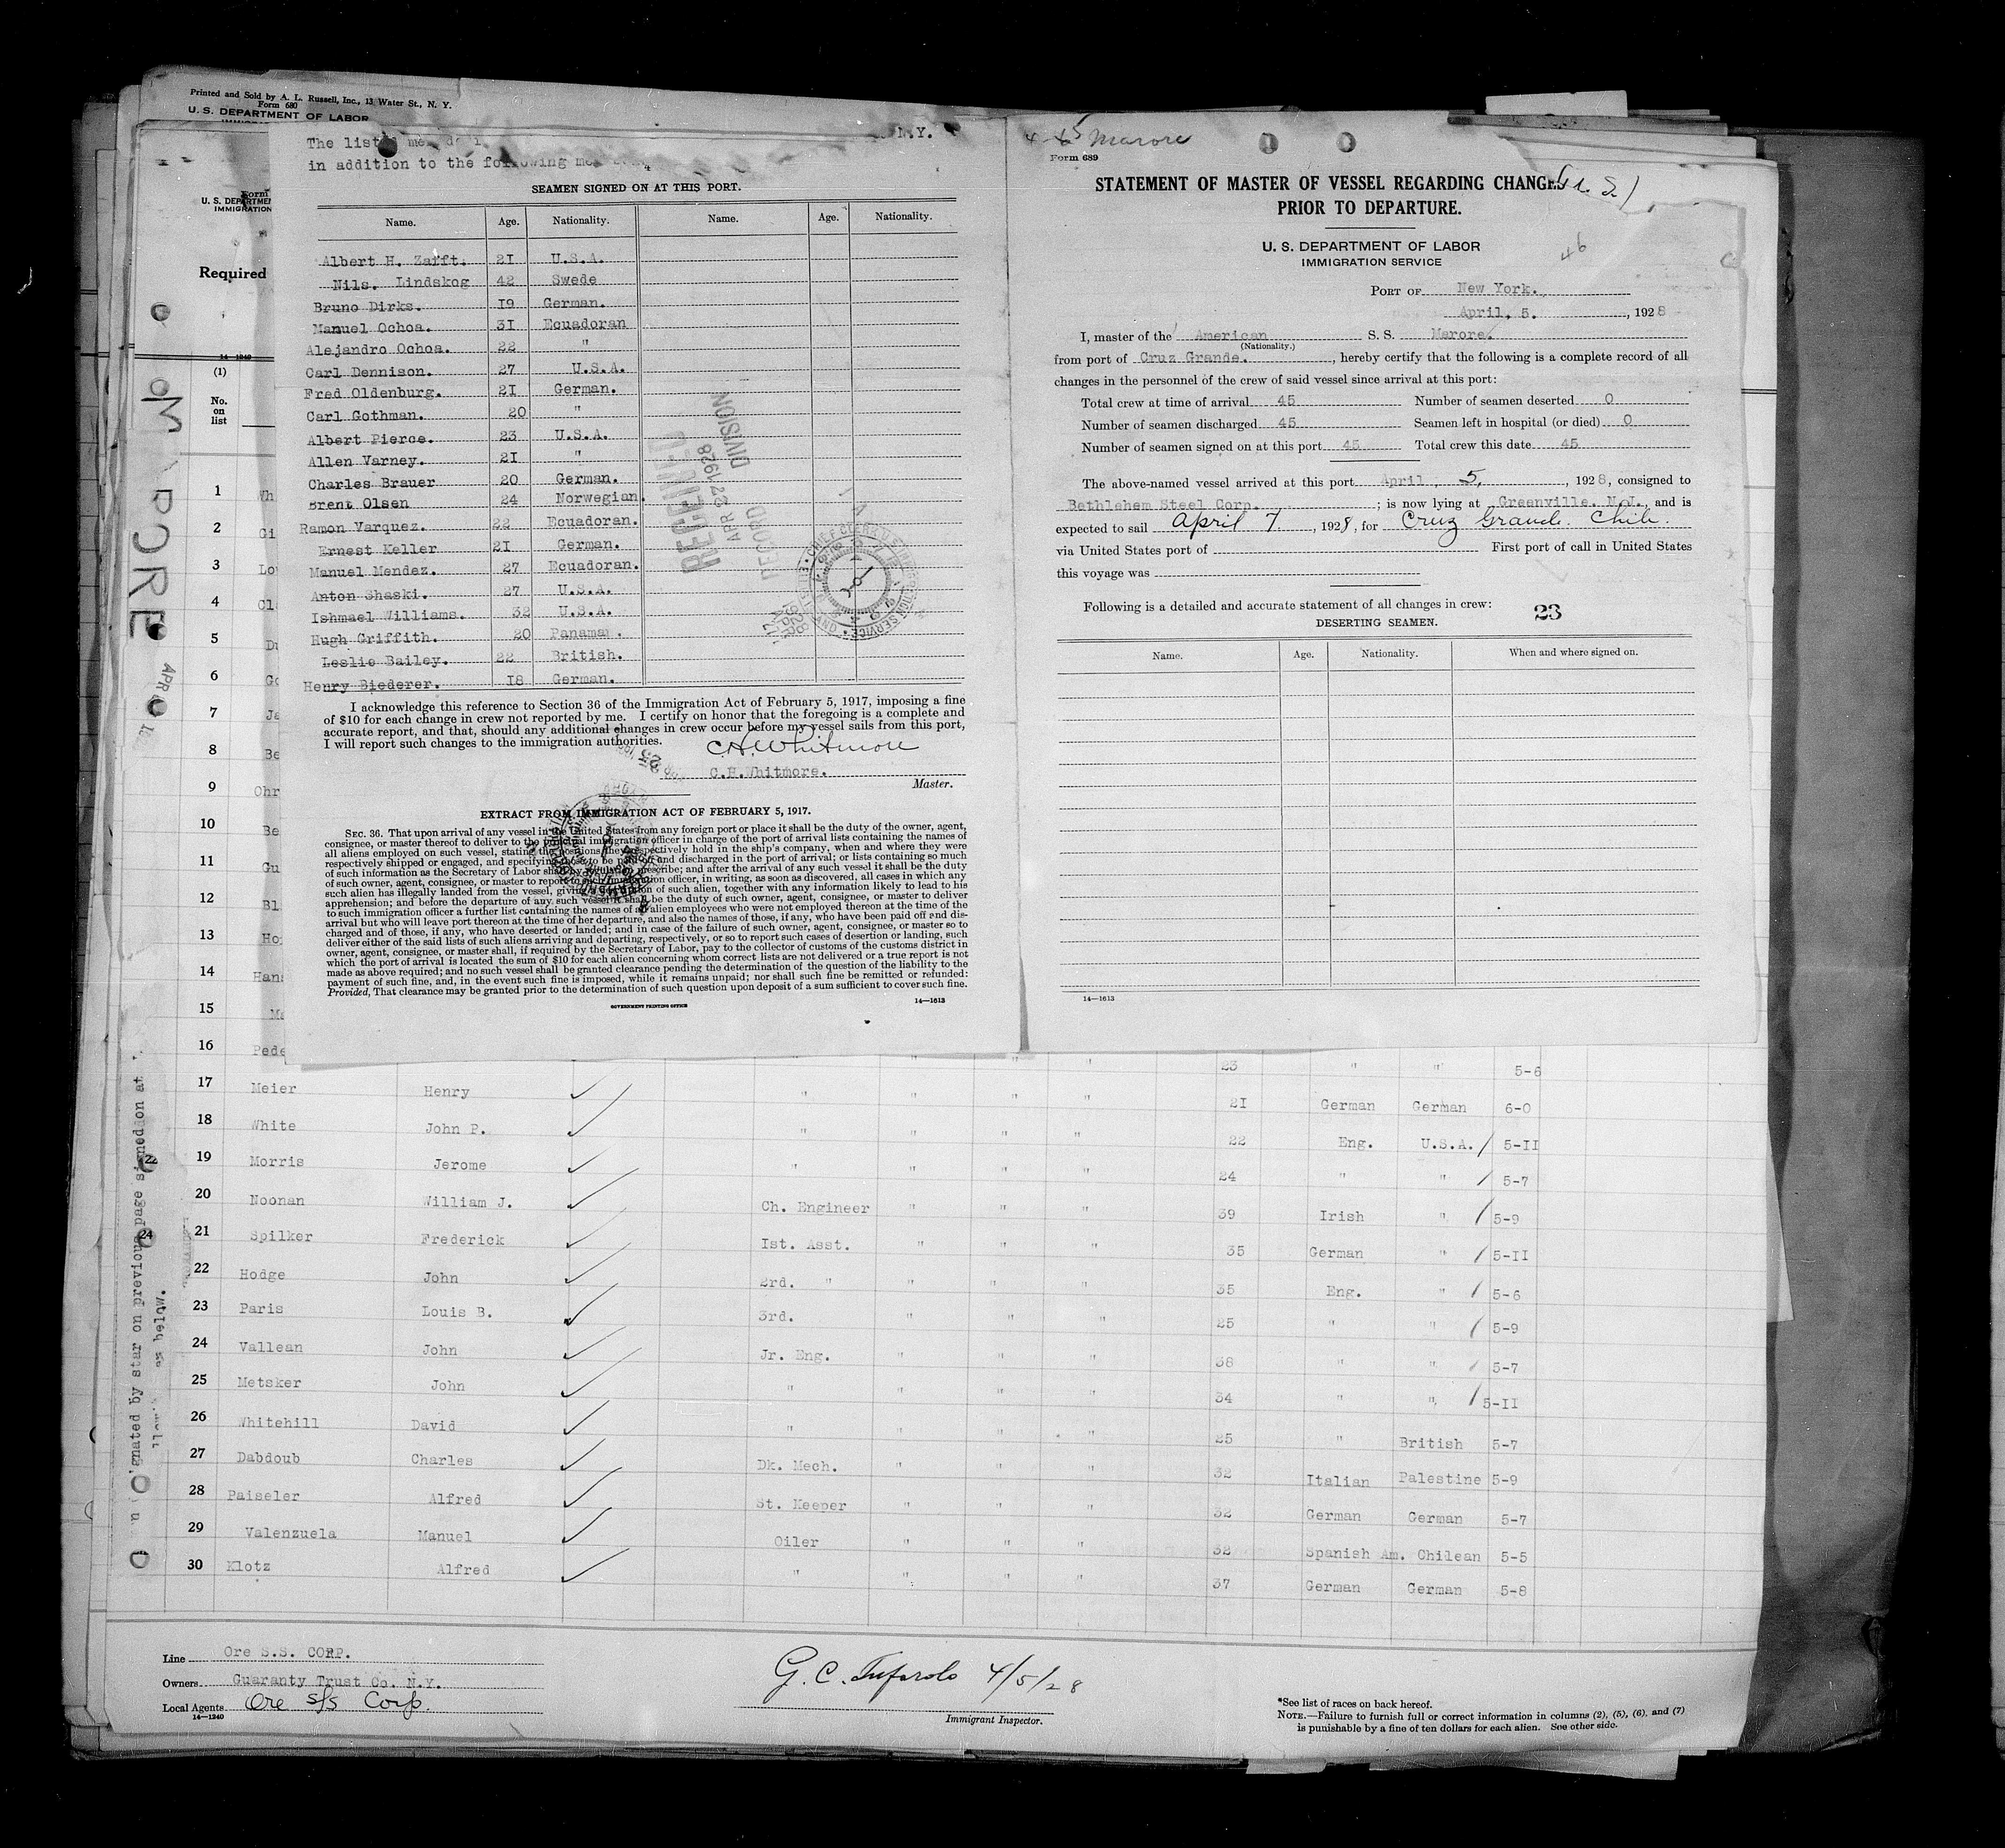 Printed and Sold by A. L. Russell, Inc., 13 Water St., N. Y.
Form 680
U. S. DEPARTMENT OF LABOR
Form
U. S. DEPARTME
IMMIGRATION
Required
14—1240
(1)
No.
on
list
N.Y.
The list
in addition to the following
SEAMEN SIGNED ON AT THIS PORT.
Name. Age. Nationality. Name. Age. Nationality.
Albert H. Zarft. 21 U.S.A.
Nils. Lindskog 42 Swede
Bruno Dirks. 19 German.
Manuel Ochoa. 31 Ecuadoran
Alejandro Ochoa. 22 "
Carl Dennison. 27 U.S.A.
Fred Oldenburg. 21 German.
Carl Gothman. 20 "
Albert Pierce. 23 U.S.A.
Allen Varney. 21 "
Charles Brauer 20 German.
Brent Olsen 24 Norwegian.
Ramon Varquez. 22 Ecuadoran.
Ernest Keller 21 German.
Manuel Mendez. 27 Ecuadoran.
Anton Shaski. 27 U.S.A.
Ishmael Williams. 32 U.S.A.
Hugh Griffith. 20 Panaman.
Leslie Bailey. 22 British.
Henry Biederer. 18 German.
RECEIVED
APR 22 1928
RECORD DIVISION
I acknowledge this reference to Section 36 of the Immigration Act of February 5, 1917, imposing a fine
of $10 for each change in crew not reported by me. I certify on honor that the foregoing is a complete and
accurate report, and that, should any additional changes in crew occur before my vessel sails from this port,
I will report such changes to the immigration authorities.
C H Whitmore
C.H.Whitmore.
Master.
EXTRACT FROM IMMIGRATION ACT OF FEBRUARY 5, 1917.
SEC. 36. That upon arrival of any vessel in the United States from any foreign port or place it shall be the duty of the owner, agent,
consignee, or master thereof to deliver to the principal immigration officer in charge of the port of arrival lists containing the names of
all aliens employed on such vessel, stating the positions they respectively hold in the ship's company, when and where they were
respectively shipped or engaged, and specifying those to be paid off and discharged in the port of arrival; or lists containing so much
of such information as the Secretary of Labor shall by regulation prescribe; and after the arrival of any such vessel it shall be the duty
of such owner, agent, consignee, or master to report to such immigration officer, in writing, as soon as discovered, all cases in which any
such alien has illegally landed from the vessel, giving a description of such alien, together with any information likely to lead to his
apprehension; and before the departure of any such vessel it shall be the duty of such owner, agent, consignee, or master to deliver
to such immigration officer a further list containing the names of all alien employees who were not employed thereon at the time of the
arrival but who will leave port thereon at the time of her departure, and also the names of those, if any, who have been paid off and dis-
charged and of those, if any, who have deserted or landed; and in case of the failure of such owner, agent, consignee, or master so to
deliver either of the said lists of such aliens arriving and departing, respectively, or so to report such cases of desertion or landing, such
owner, agent, consignee, or master shall, if required by the Secretary of Labor, pay to the collector of customs of the customs district in
which the port of arrival is located the sum of $10 for each alien concerning whom correct lists are not delivered or a true report is not
made as above required; and no such vessel shall be granted clearance pending the determination of the question of the liability to the
payment of such fine, and, in the event such fine is imposed, while it remains unpaid; nor shall such fine be remitted or refunded:
Provided, That clearance may be granted prior to the determination of such question upon deposit of a sum sufficient to cover such fine.
GOVERNMENT PRINTING OFFICE 14—1613
4-5 Marore
Form 689
STATEMENT OF MASTER OF VESSEL REGARDING CHANGES
PRIOR TO DEPARTURE.
U. S. DEPARTMENT OF LABOR
IMMIGRATION SERVICE
46
PORT OF New York.
April. 5. , 1928
I, master of the American S. S. Marore.
(Nationality.)
from port of Cruz Grande. , hereby certify that the following is a complete record of all
changes in the personnel of the crew of said vessel since arrival at this port:
Total crew at time of arrival 45 Number of seamen deserted 0
Number of seamen discharged 45 Seamen left in hospital (or died) 0
Number of seamen signed on at this port 45 Total crew this date 45
The above-named vessel arrived at this port April, 5, , 1928, consigned to
Bethlehem Steel Corp. ; is now lying at Greenville. N.J. and is
expected to sail April 7 , 1928, for Cruz Grande. Chile.
via United States port of First port of call in United States
this voyage was
Following is a detailed and accurate statement of all changes in crew: 23
DESERTING SEAMEN.
Name. Age. Nationality. When and where signed on.
14—1613
1 Wh
2 Gi
3 Lo
4 Cl
5 Du
6 Go
7 Ja
8 Be
9 Chr
10 Be
11 Gu
12 Bl
13 Ho
14 Hans
15 Me
16 Pede " " 23 " " 5-6
17 Meier Henry " " " " 21 German German 6-0
18 White John P. " " " " 22 Eng. U.S.A. / 5-11
19 Morris Jerome " " " " 24 " " / 5-7
20 Noonan William J. Ch. Engineer " " " 39 Irish " / 5-9
21 Spilker Frederick 1st. Asst. " " " 35 German " / 5-11
22 Hodge John 2rd. " " " " 35 Eng. " / 5-6
23 Paris Louis B. 3rd. " " " 25 " " / 5-9
24 Vallean John Jr. Eng. " " " 38 " " / 5-7
25 Metsker John " " " " 34 " " / 5-11
26 Whitehill David " " " 25 " British 5-7
27 Dabdoub Charles Dk. Mech. " " " 32 Italian Palestine 5-9
28 Paiseler Alfred St. Keeper " " " 32 German German 5-7
29 Valenzuela Manuel Oiler " " " 32 Spanish Am. Chilean 5-5
30 Klotz Alfred " " " " 37 German German 5-8
Line Ore S.S. CORP.
Owners Guaranty Trust Co. N.Y.
Local Agents Ore S/S Corp.
14—1240
4/5/28
Immigrant Inspector.
*See list of races on back hereof.
NOTE.—Failure to furnish full or correct information in columns (2), (5), (6), and (7)
is punishable by a fine of ten dollars for each alien. See other side.